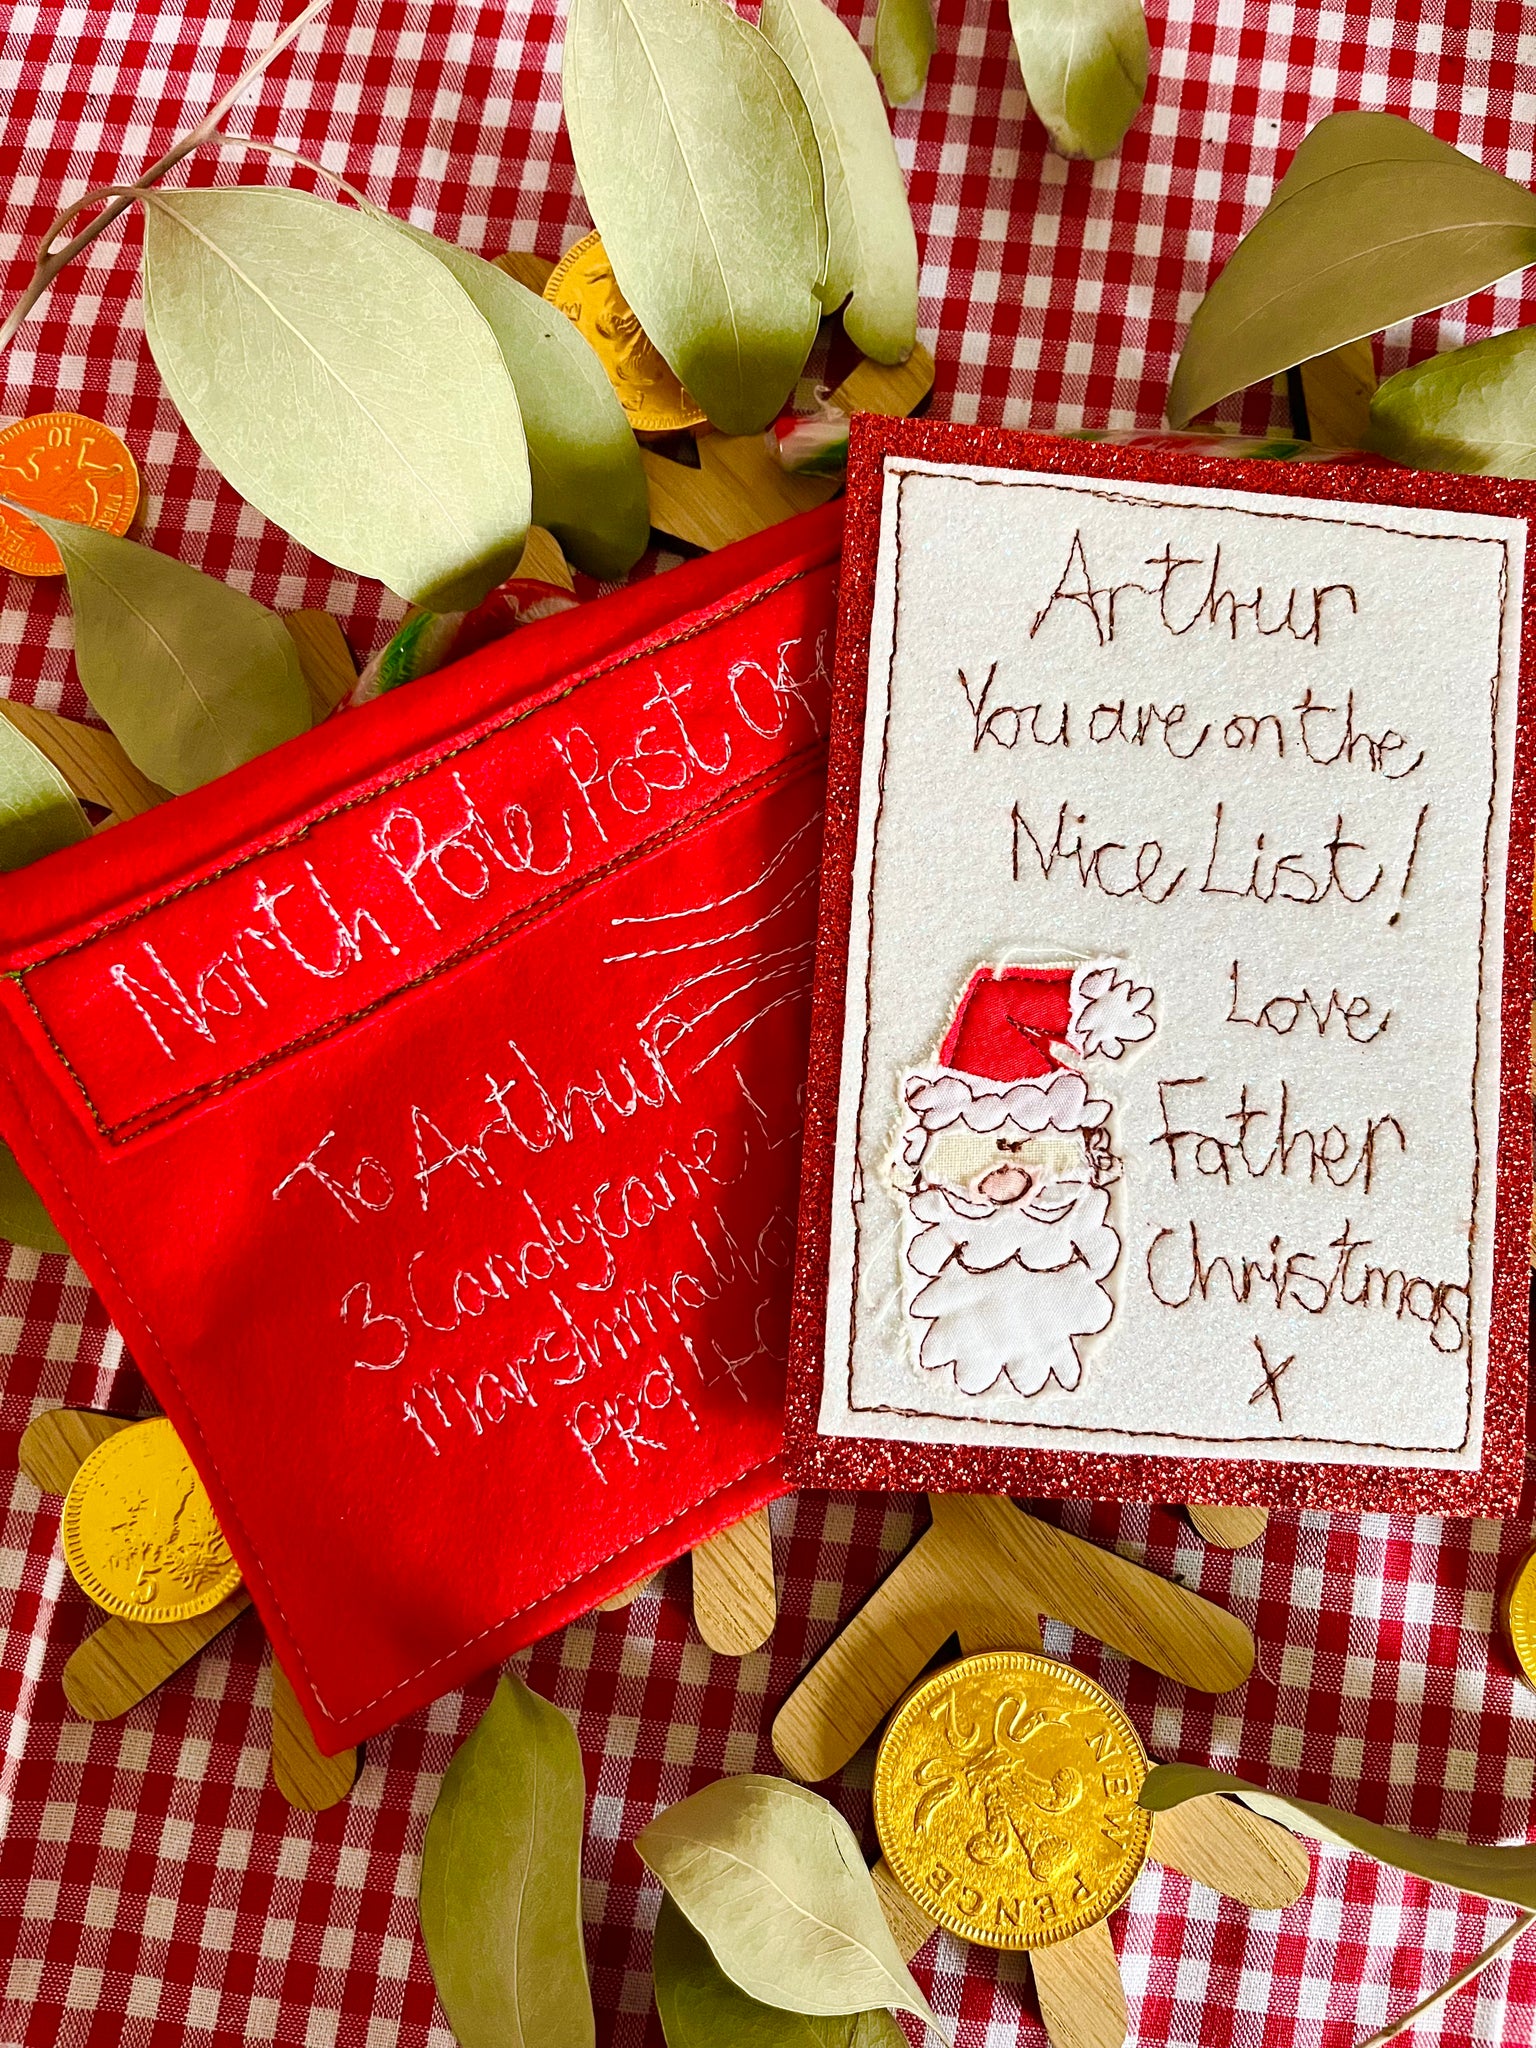 North Pole Post
To Arthur
3 Candycane
Marshmallo
PR9
Arthur
You are on the
Nice List!
Love
Father
Christmas
X
10
5
2 NEW PENCE